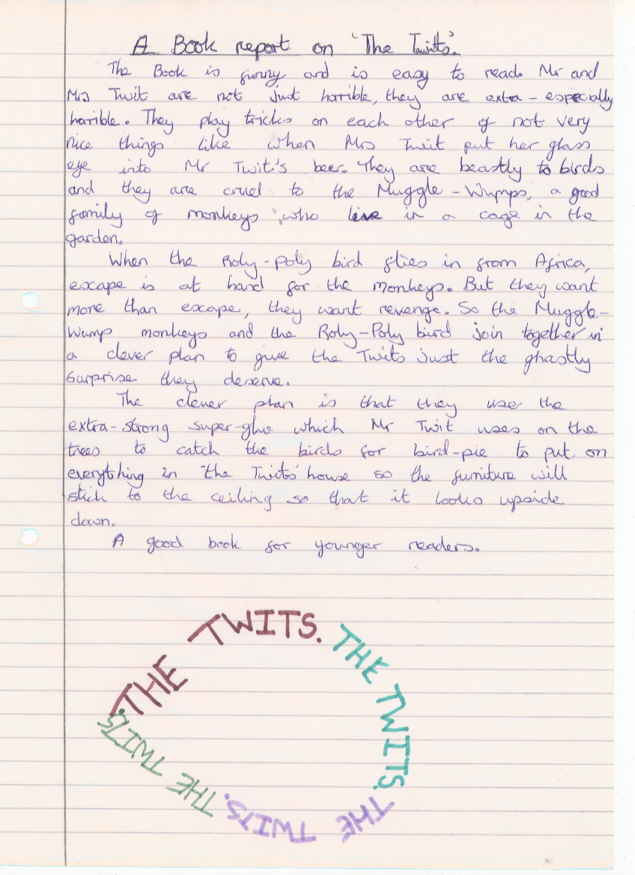 A Book report on 'The Twits'.
The Book is funny and is easy to read. Mr and
Mrs Twit are not just horrible, they are extra-especially
horrible. They play tricks on each other of not very
nice things like when Mrs Twit put her glass
eye into Mr Twit's beer. They are beastly to birds
and they are cruel to the Muggle-Wumps, a good
family of monkeys who live in a cage in the
garden.
When the Roly-Poly bird flies in from Africa,
escape is at hand for the monkeys. But they want
more than escape, they want revenge. So the Muggle-
Wump monkeys and the Roly-Poly bird join together in
a clever plan to give the Twits just the ghastly
surprise they deserve.
The clever plan is that they use the
extra-strong super-glue which Mr Twit uses on the
trees to catch the birds for bird-pie to put on
everything in 'the Twits' house so the furniture will
stick to the ceiling so that it looks upside
down.
A good book for younger readers.
THE TWITS.
THE TWITS.
THE TWITS.
THE TWITS.